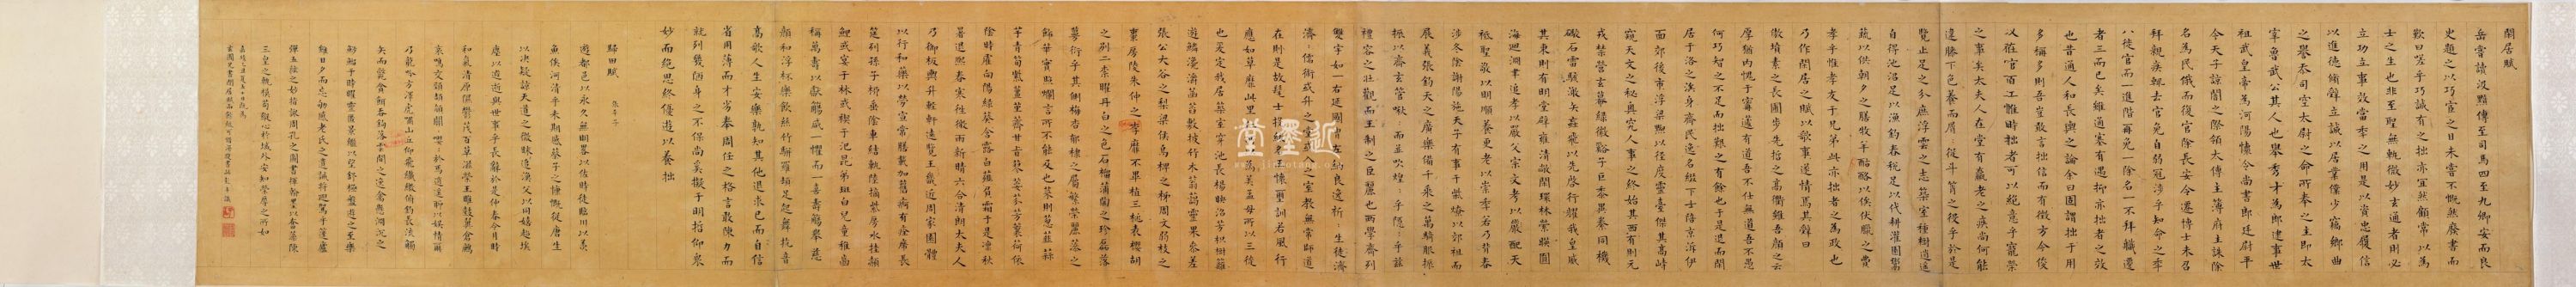 閒居賦
岳嘗讀汲黯傳至司馬四至九卿安而良
史題之以巧宦之目未嘗不慨然廢書而
歎曰嗟乎巧誠有之拙亦宜然顧常以為
士之生也非至聖無軌微妙玄通者則必
立功立事效當季之用是以資忠履信
以進德脩辭立誠以居業僕少竊鄉曲
之譽忝司空太尉之命所奉之主即太
宰魯武公其人也舉秀才為郎逮事世
祖武皇帝為河陽懷令尚書郎廷尉平
今天子諒闇之際領太傅主簿府主誅除
名為民俄而復官除長安令遷博士未召
拜親疾輒去官免自弱冠涉乎知命之季
八徙官而一進階再免一除名一不拜職遷
者三而已矣雖通塞有遇抑亦拙者之效
也昔通人和長輿之論余曰固謂拙于用
多稱多則吾豈敢言拙信而有徵方今俊
乂在官百工惟時拙者可以絕意乎寵榮
之事矣太夫人在堂有羸老之疾尚何能
違膝下色養而屑屑從斗筲之役乎於是
覽止足之分庶浮雲之志築室種樹逍遙
自得池沼足以漁釣舂稅足以代耕灌園鬻
蔬以供朝夕之膳牧羊酤酪以俟伏臘之費
孝乎惟孝友于兄弟此亦拙者之為政也
乃作閒居之賦以歌事遂情焉其辭曰
傲墳素之長圃步先哲之高衢雖吾顏之云
厚猶內愧于甯蘧有道吾不仕無道吾不愚
何巧智之不足而拙艱之有餘也于是退而閒
居于洛之涘身齊逸民名綴下士倍京泝伊
面郊後市浮梁黝以徑度靈臺傑其高峙
窺天文之秘奧究人事之終始其西有則元
戎禁營玄幕綠徽谿子巨黍異絭同機
礮石雷駭激矢蝱飛以先啓行耀我皇威
其東則有明堂辟雍清敞閑環林縈暎圓
海迴淵聿追孝以嚴父宗文考以配天
祗聖敬以明順養更老以崇季若乃背春
涉冬陰謝陽施天子有事于柴燎以郊祖而
展義張鈞天之廣樂備千乘之萬騎服振
振以齊玄管啾啾而並吹煌煌乎隱隱乎茲
禮容之壯觀而王制之巨麗也兩學齊列
雙宇如一右延國胄左納良逸祁祁生徒濟
濟儒術或升之堂或入之室教無常師道
在則是故髦士投紱名王懷璽訓若風行
應如草靡此里仁為美孟母所以三徙
也爰定我居築室穿池長楊映沼芳枳樹籬
遊鱗瀺灂菡萏敷披竹木蓊藹靈果參差
張公大谷之梨梁侯烏椑之柿周文弱枝之
棗房陵朱仲之李靡不畢植三桃表櫻胡
之別二柰曜丹白之色石榴蒲陶之珍磊落
蔓衍乎其側梅杏郁棣之屬繁榮麗藻之
飾華實照爛言所不能及也菜則葱韭蒜
芋青筍紫薑堇薺甘旨蓼荽芬芳蘘荷依
陰時藿向陽綠葵含露白薤負霜于是凜秋
暑退熙春寒往微雨新晴六合清朗太夫人
乃御板輿升輕軒遠覽王畿近周家園體
以行和藥以勞宣常膳載加舊痾有痊席長
筵列孫子柳垂陰車結軌陸擿紫房水挂赬
鯉或宴于林或禊于汜昆弟斑白兒童稚齒
稱萬壽以獻觴咸一懼而一喜壽觴舉慈
顏和浮杯樂飲絲竹駢羅頓足起舞抗音
高歌人生安樂孰知其他退求己而自信
省用薄而才劣奉周任之格言敢陳力而
就列幾陋身之不保尚奚擬于明哲仰眾
妙而絕思終優遊以養拙
歸田賦 張平子
遊都邑以永久無明畧以佐時徒臨川以羡
魚俟河清乎未期感蔡子之慷慨從唐生
以決疑諒天道之微昧追漁父以同嬉超埃
塵以遐逝與世事乎長辭於是仲春令月時
和氣清原隰鬱茂百草滋榮王雎鼓翼倉鶊
哀鳴交頸頡頏關關嚶嚶於焉逍遙聊以娛情爾
乃龍吟方澤虎嘯山丘仰飛纖繳俯釣長流觸
矢而斃貪餌吞鈎落雲間之逸禽懸淵沉之
魦鰡于時曜靈匿景繼以望舒極盤遊之至樂
雖日夕而忘劬感老氏之遺誡將迴駕乎蓬廬
彈五弦之妙指詠周孔之圖書揮翰墨以奮藻陳
三皇之軌模苟縱心於域外安知榮辱之所如
近墨堂